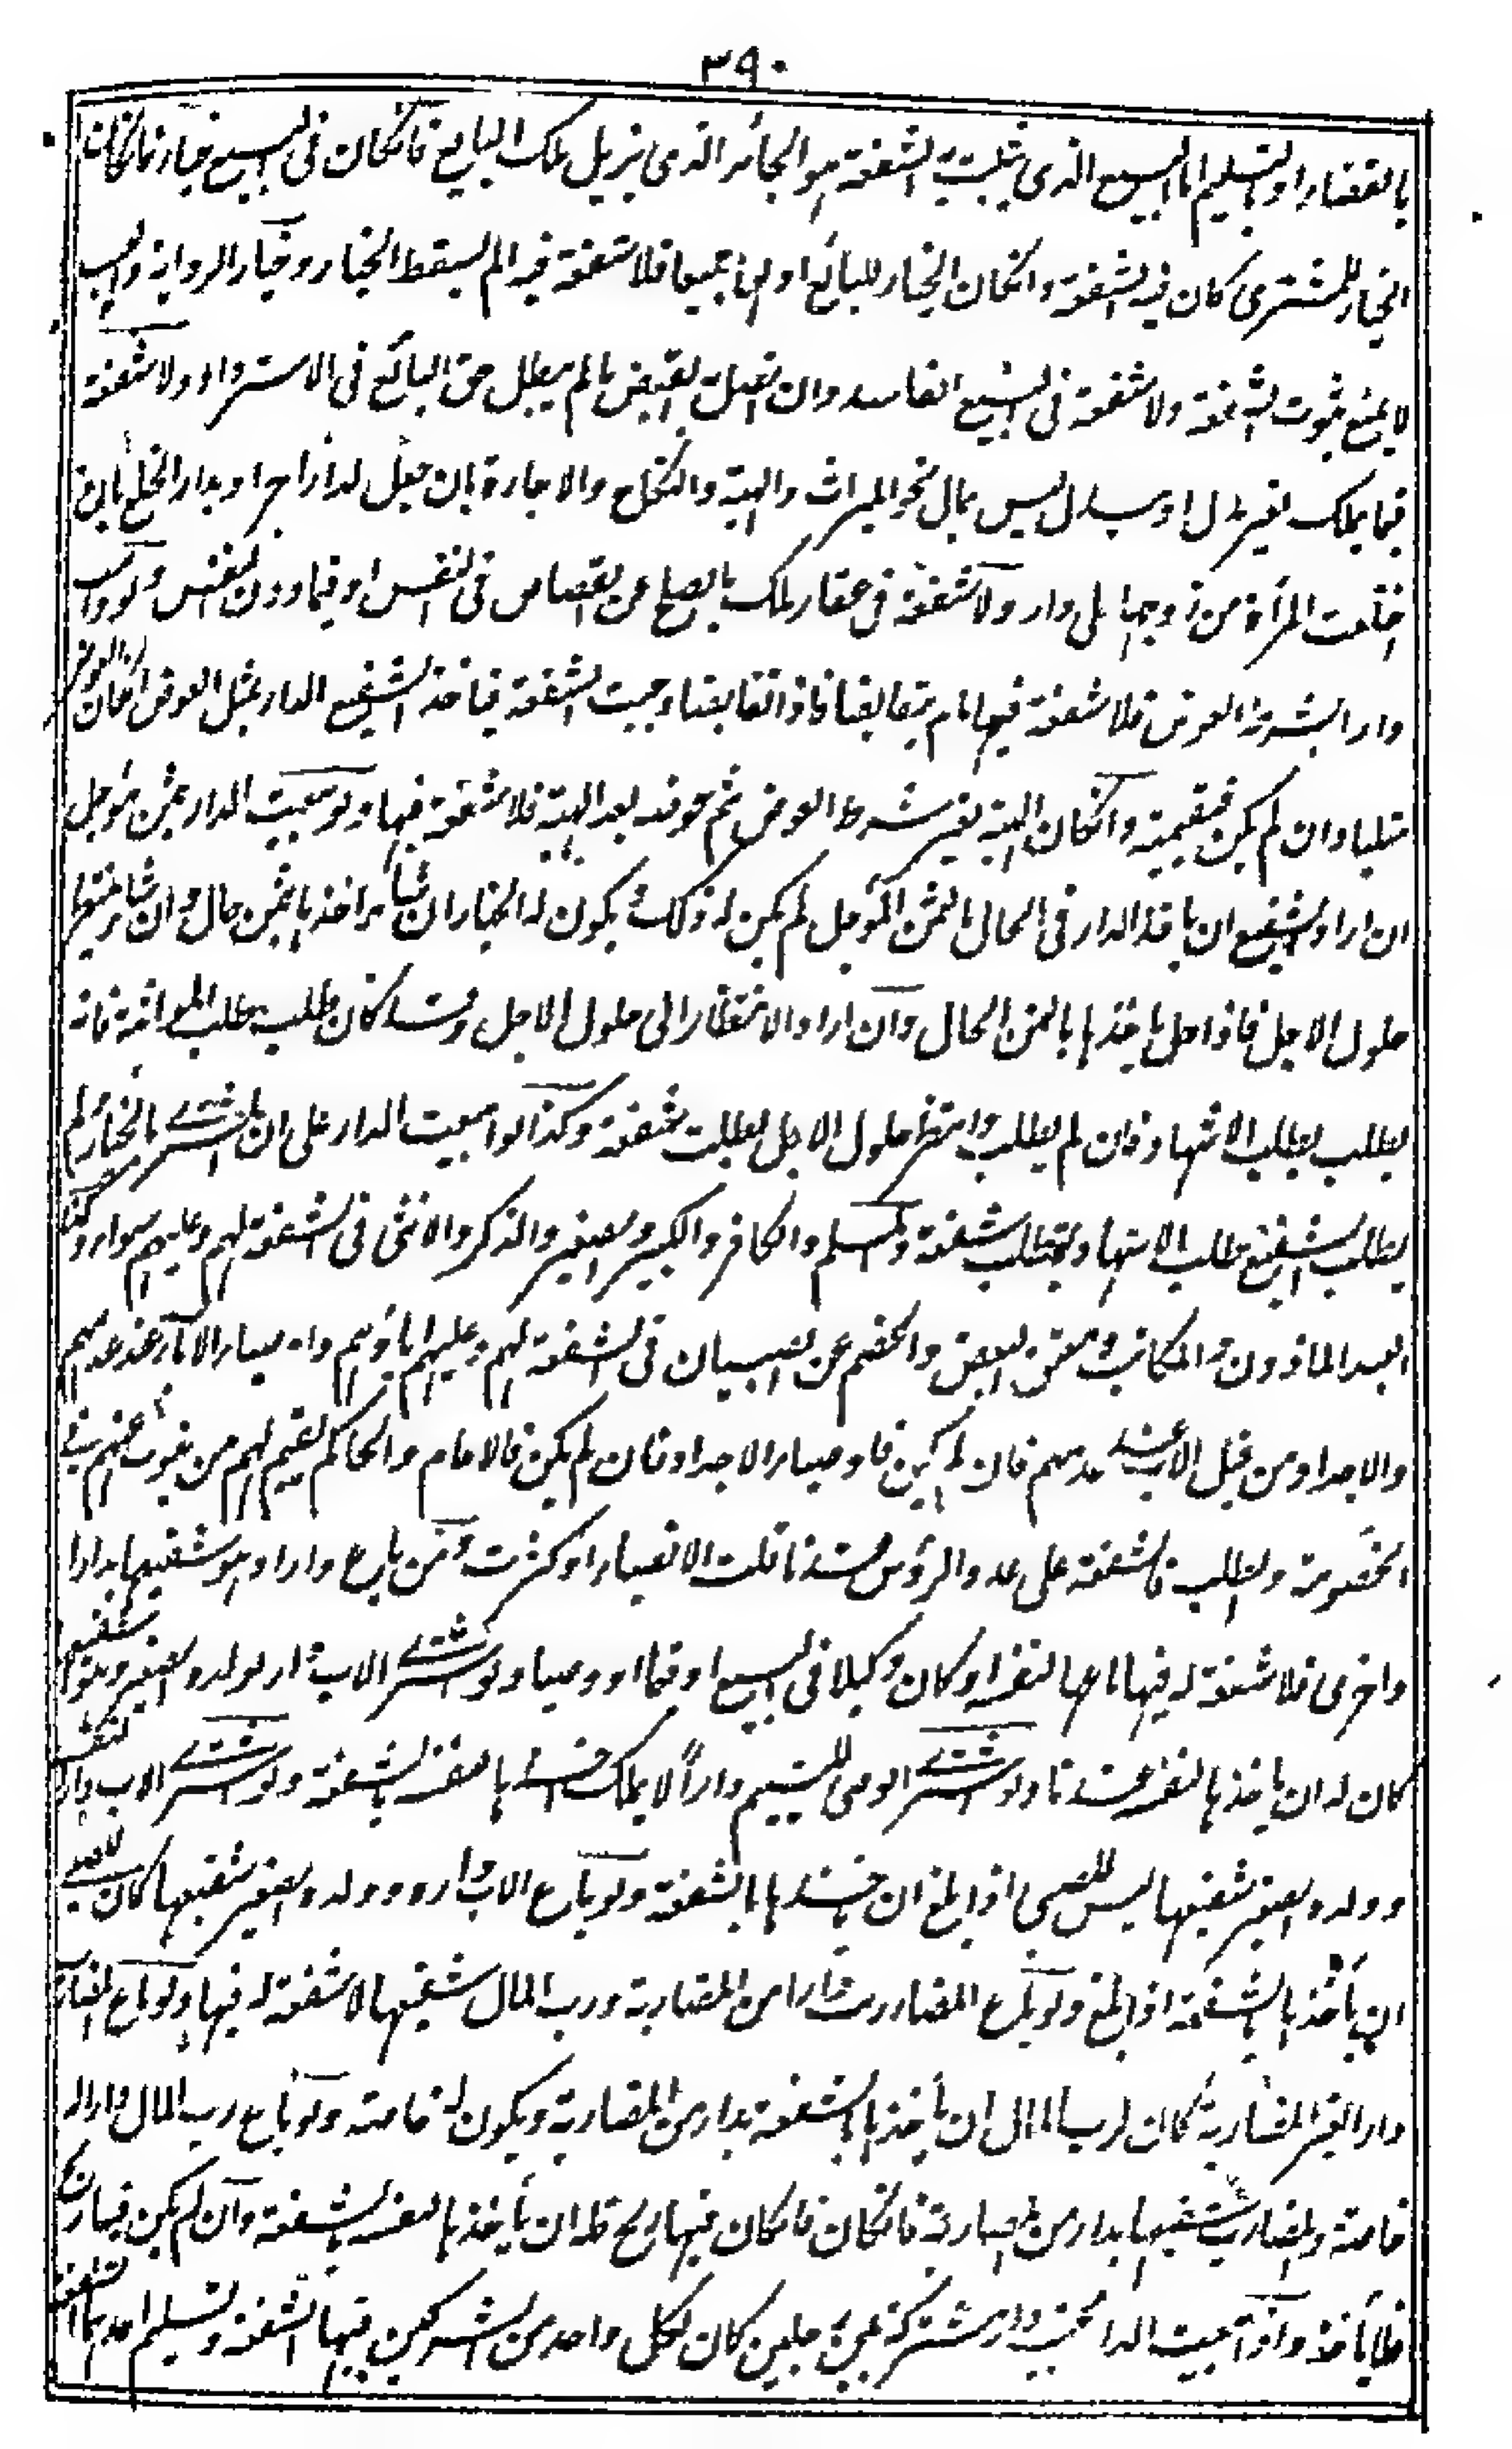 ٣٩٠
بالقضاء او بالتسليم اما البيع الذى يثبت به الشفعة هو الجائز الذى يزيل ملك البايع فانكان فى البيع خيار فانكان
الخيار للمشترى كان فيه الشفعة وانكان الخيار للبائع او لهما جميعا فلا شفعة فيه مالم يسقط الخيار وخيار الرواية والعيب
لا يمنع ثبوت الشفعة ولا شفعة فى البيع الفاسد وان اتصل به القبض مالم يبطل حق البائع فى الاسترداد ولا شفعة
فيما يملك بغير بدل او ببدل ليس بمال نحو الميراث والهبة والنكاح والاجارة بان جعل الدار اجرا او بدار الخلع بان
اختلعت المرأة من زوجها على دار ولا شفعة فى عقار ملك بالصلح عن القصاص فى النفس او فيما دون النفس ولو وهب
دارا بشرط العوض فلا شفعة فيها مالم يتقابضا فاذا تقابضا وجبت الشفعة فياخذ الشفيع الدار بمثل العوض انكان العوض
مثليا وان لم يكن فبقيمته وانكان الهبة بغير شرط العوض ثم عوضه بعد الهبة فلا شفعة فيها ولو بيعت الدار بثمن مؤجل
ان اراد الشفيع ان ياخذ الدار فى الحال بالثمن المؤجل لم يكن له ذلك ويكون له الخيار ان شاء اخذ بالثمن حال وان شاء ينتظر
حلول الاجل فاذا حل ياخذها بالثمن الحال وان اراد الانتظار الى حلول الاجل وقد كان طلب طلب المواثبة فانه
يطلب طلب الاشهاد فان لم يطلب وانتظر حلول الاجل بطلت شفعته وكذا لو بيعت الدار على ان المشترى بالخيار لم
يطلب الشفيع طلب الاشهاد بطلت شفعته والمسلم والكافر والكبير والصغير والذكر والانثى فى الشفعة لهم وعليهم سواء وكذا
العبد الماذون والمكاتب ومعتق البعض والخصم عن الصبيان فى الشفعة لهم وعليهم اباؤهم واوصياء الاباء عند عدمهم
والاجداد من قبل الاب عند عدمهم فان لم يكن فاوصياء الاجداد فان لم يكن فالامام والحاكم يقيم لهم من ينوب عنهم فى
الخصومة والطلب فالشفعة على عدد الرؤس عندنا قلت الانصباء او كثرت ومن باع دارا وهو شفيعها بدار
اخرى فلا شفعة له فيها باعها لنفسه او كان وكيلا فى البيع او قيما او وصيا ولو اشترى الاب دار لولده الصغير وهو شفيعها
كان له ان ياخذها لنفسه عندنا ولو اشترى الوصى لليتيم دارا لا يملك اخذها لنفسه بالشفعة ولو اشترى الاب دارا لنفسه
وولده الصغير شفيعها ليس للصبى اذا بلغ ان ياخذها بالشفعة ولو باع الاب داره وولده الصغير شفيعها كان للصبى
ان يأخذ بالشفعة اذا بلغ ولو باع المضارب دارا من المضاربة ورب المال شفيعها لا شفعة له فيها ولو باع المضارب
دارا لغير المضاربة كان لرب المال ان ياخذها بالشفعة بدار من المضاربة ويكون له خاصة ولو باع رب المال دارا له
خاصة والمضارب شفيعها بدار من المضاربة فانكان فيها ربح فله ان يأخذها لنفسه بالشفعة وان لم يكن فيها ربح
فلا يأخذ واذا بيعت الدار بجنب دار مشتركة بين رجلين كان لكل واحد من الشريكين فيها الشفعة وتسليم احدهما الشفعة